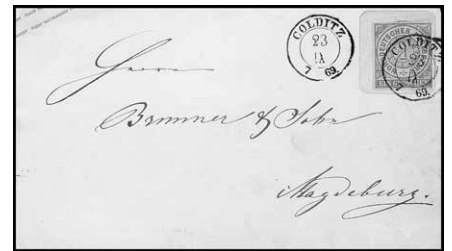 COLDITZ
23
IX
7 69.
DEUTSCHER
COLDITZ
23
IX
69.
Herrn
Brunner & Sohn
Magdeburg.